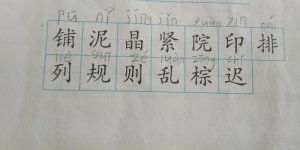 pū ní jīng jǐn yuàn yìn pái
铺泥晶紧院印排
liè guī zé luàn zōng chí
列规则乱棕迟